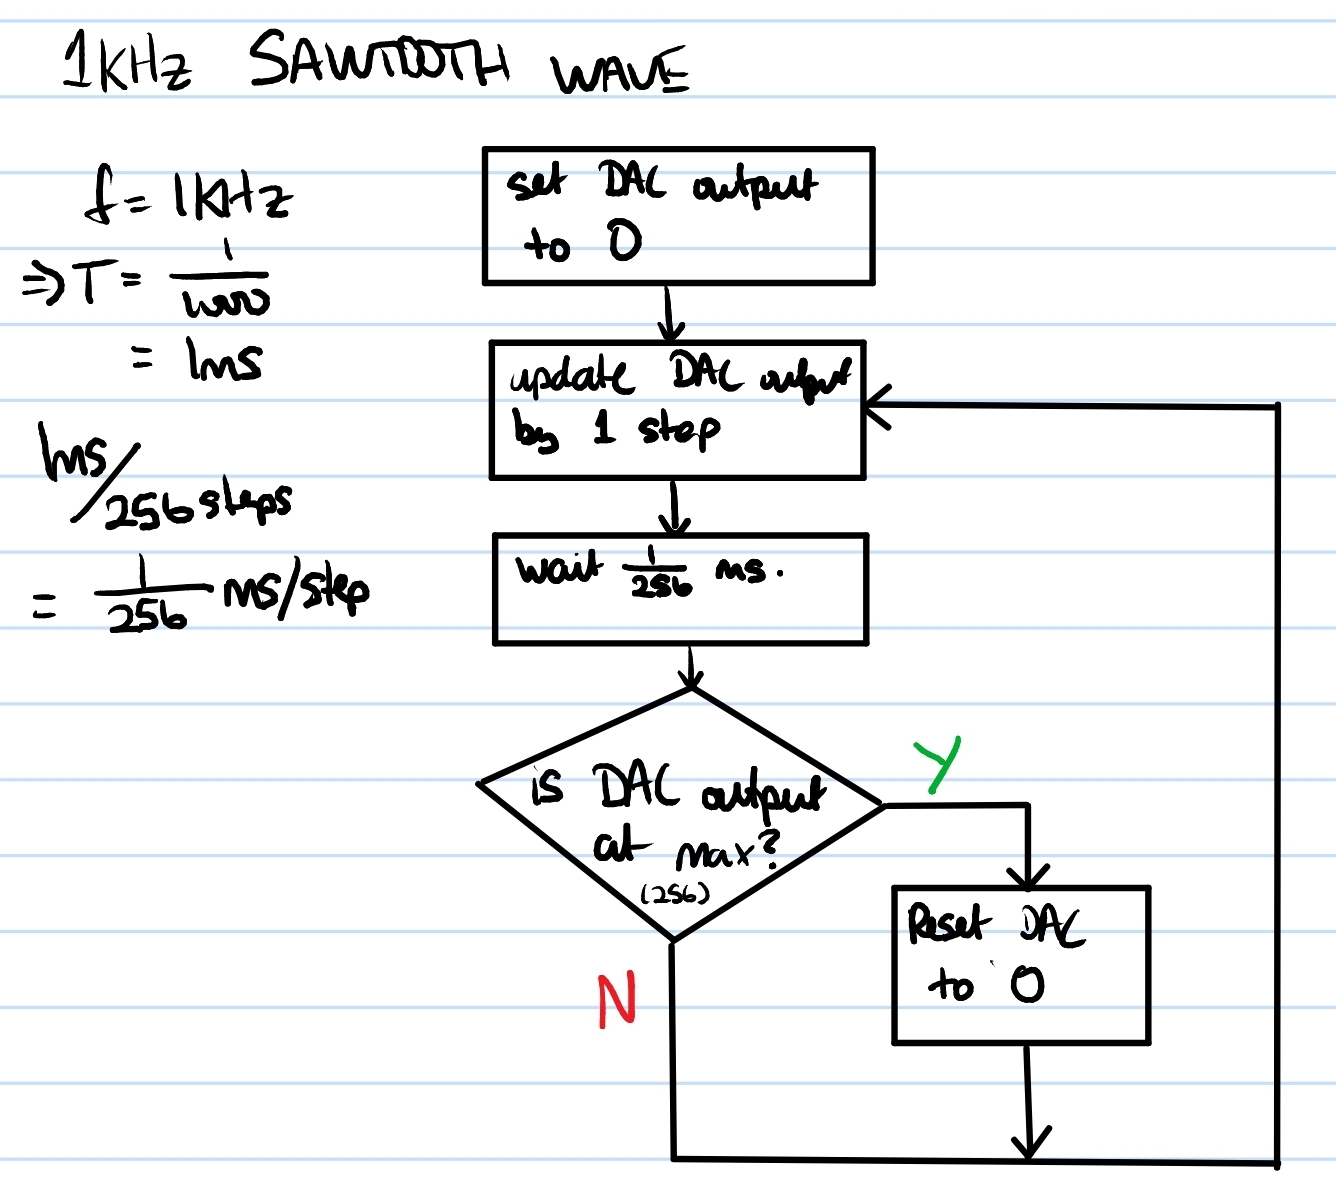 1KHz SAWTOOTH WAVE
f = 1KHz
⇒ T = 1/1000
= 1ms
1ms/256 steps
= 1/256 ms/step
set DAC output
to 0
update DAC output
by 1 step
wait 1/256 ms.
is DAC output
at max?
(256)
Y
N
Reset DAC
to 0